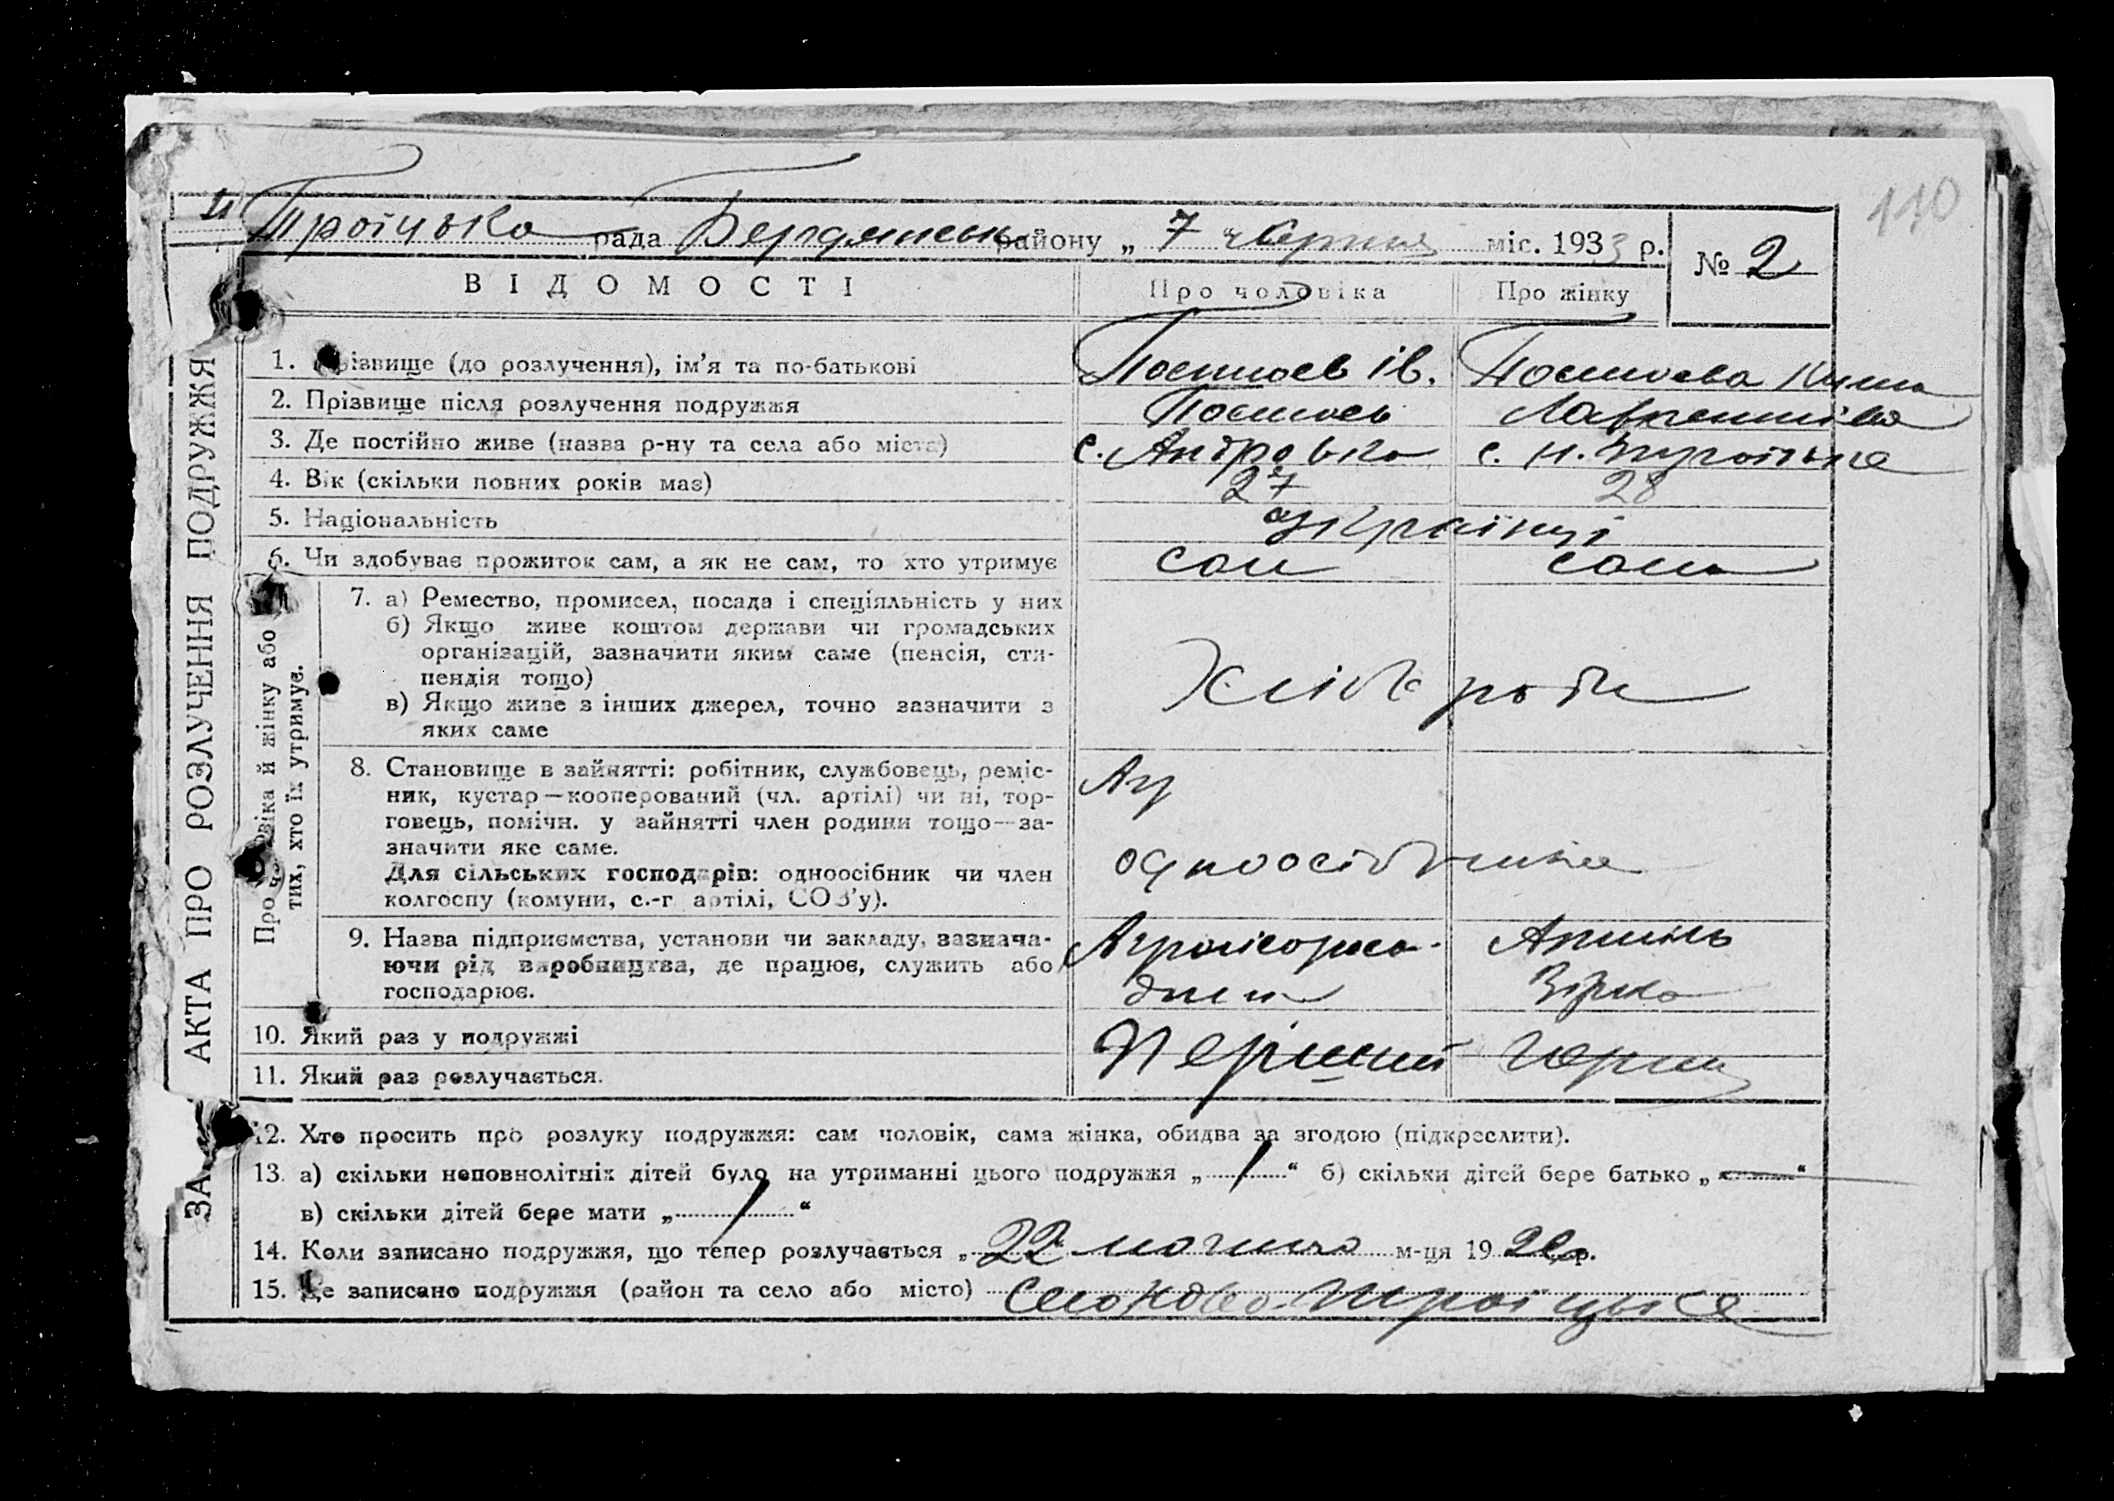 110
Троїцька рада Бердянськ району „ 7 червня міс. 1933 р.
№ 2
ВІДОМОСТІ
Про чоловіка
Про жінку
1. Прізвище (до розлучення), ім'я та по-батькові
Постоєв Ів.
Постоєва
2. Прізвище після розлучення подружжя
Постоєв
3. Де постійно живе (назва р-ну та села або міста)
с.
с. Н. Троїцьке
4. Вік (скільки повних років має)
27
28
5. Національність
українці
6. Чи здобуває прожиток сам, а як не сам, то хто утримує
сам
сама
7. а) Ремество, промисел, посада і спеціяльність у них
б) Якщо живе коштом держави чи громадських
організацій, зазначити яким саме (пенсія, сти-
пендія тощо)
в) Якщо живе з інших джерел, точно зазначити з
яких саме
Хлібороби
8. Становище в зайнятті: робітник, службовець, реміс-
ник, кустар—кооперований (чл. артілі) чи ні, тор-
говець, помічн. у зайнятті член родини тощо—за-
значити яке саме.
Для сільських господарів: одноосібник чи член
колгоспу (комуни, с.-г артілі, СОЗ'у).
одноосібники
9. Назва підприємства, установи чи закладу, зазнача-
ючи рід виробництва, де працює, служить або
господарює.
10. Який раз у подружжі
Перший
11. Який раз розлучається.
12. Хто просить про розлуку подружжя: сам чоловік, сама жінка, обидва за згодою (підкреслити).
13. а) скільки неповнолітніх дітей було на утриманні цього подружжя „ 1 “ б) скільки дітей бере батько „ — “
в) скільки дітей бере мати „ 1 “
14. Коли записано подружжя, що тепер розлучається „ 22 лютого м-ця 19 р.
15. Де записано подружжя (район та село або місто) Село Ново-Троїцьке
АКТА ПРО РОЗЛУЧЕННЯ ПОДРУЖЖЯ
Про чоловіка й жінку або
тих, хто їх утримує.